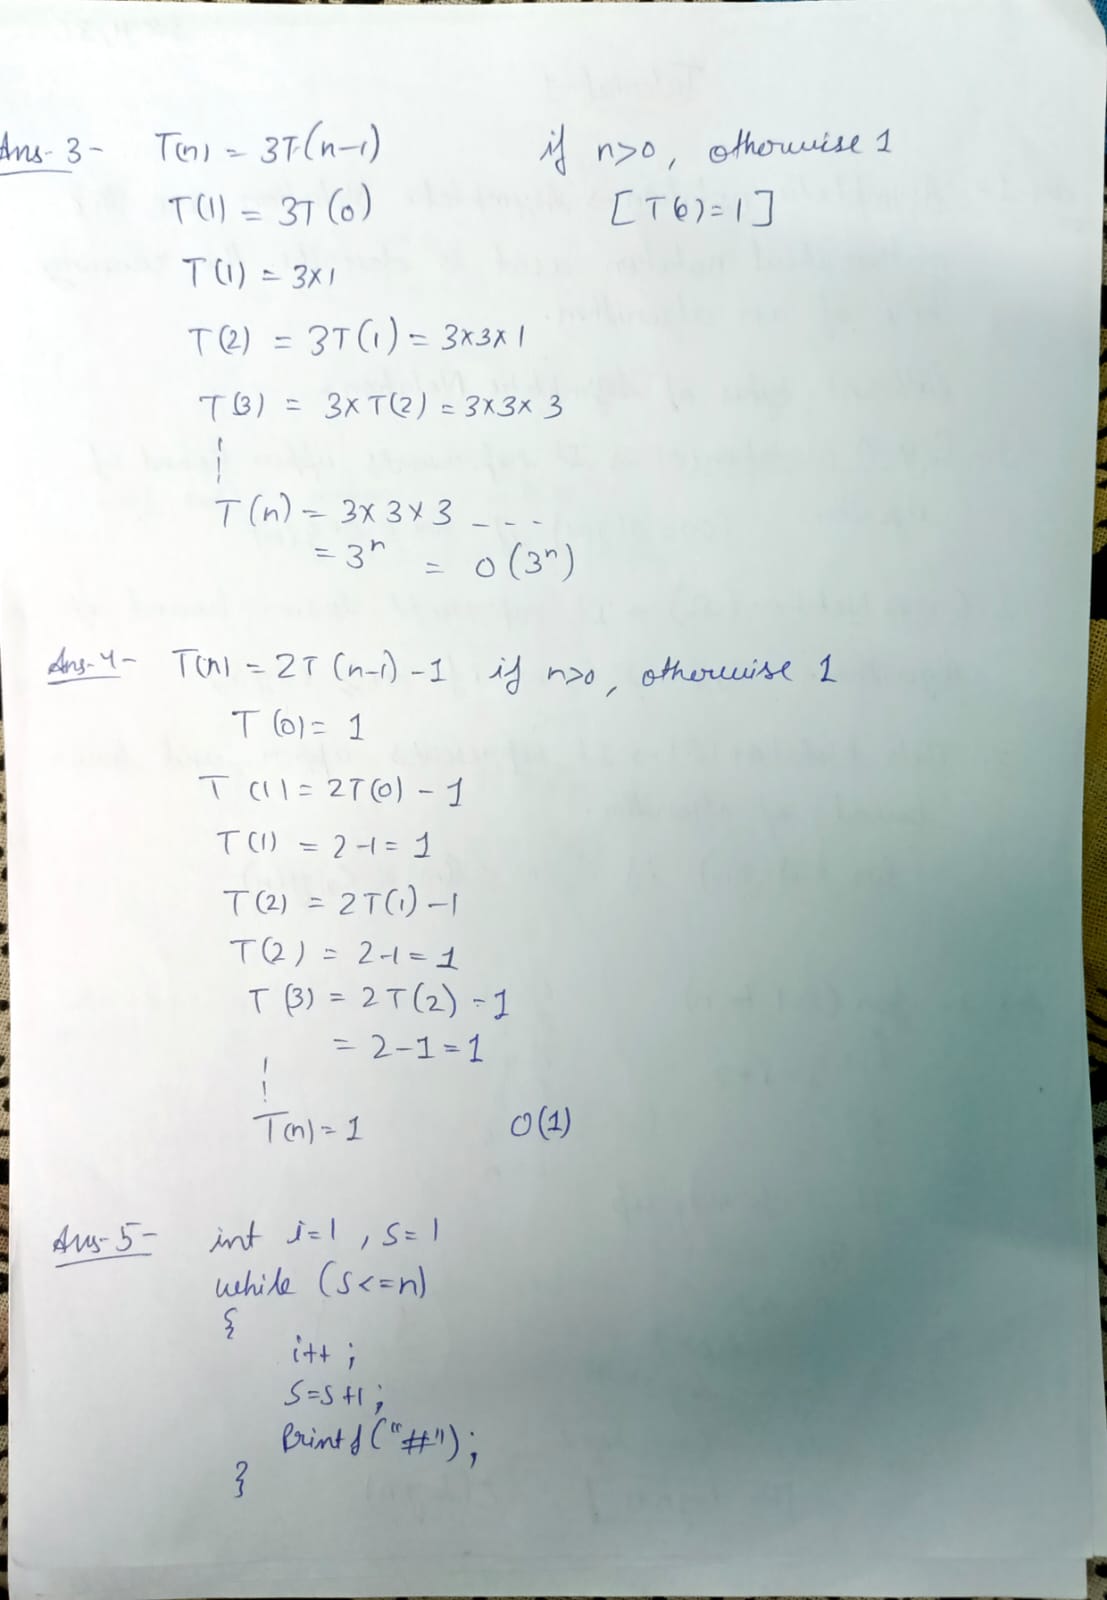 Ans-3- T(n) = 3T(n-1) if n>0, otherwise 1
T(1) = 3T(0) [T(0)=1]
T(1) = 3x1
T(2) = 3T(1) = 3x3x1
T(3) = 3xT(2) = 3x3x3
T(n) = 3x3x3 ---
= 3ⁿ = O(3ⁿ)
Ans-4- T(n) = 2T(n-1)-1 if n>0, otherwise 1
T(0) = 1
T(1) = 2T(0) - 1
T(1) = 2-1 = 1
T(2) = 2T(1)-1
T(2) = 2-1 = 1
T(3) = 2T(2)-1
= 2-1 = 1
T(n) = 1 O(1)
Ans-5- int i=1, s=1
while (s<=n)
{
i++;
s=s+1;
Printf("#");
}